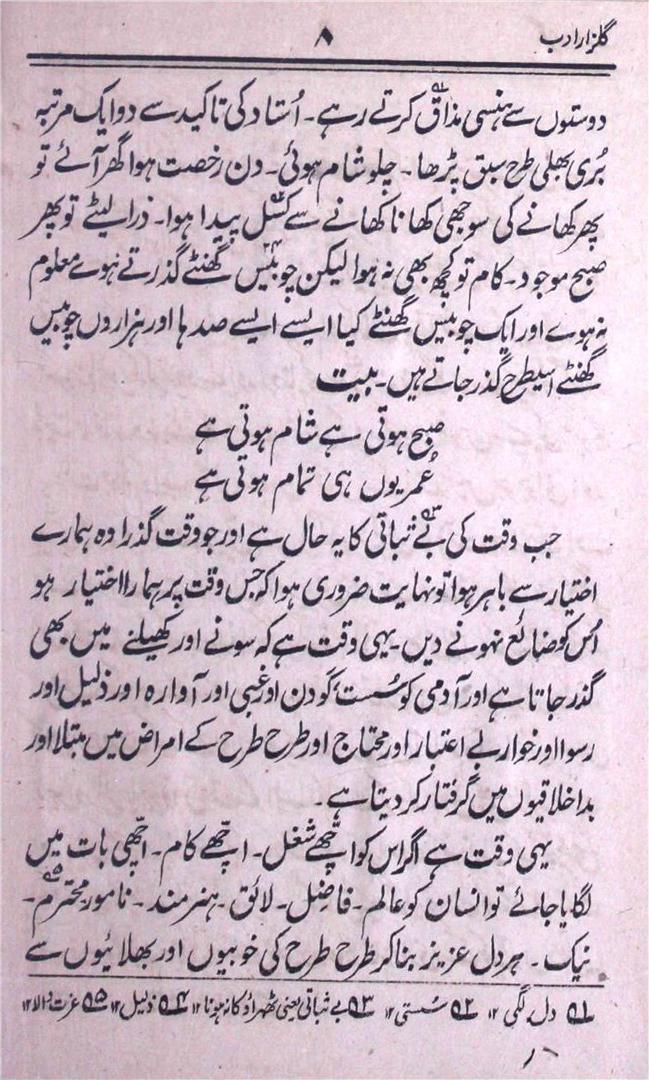 گلزار ادب ۸
دوستوں سے ہنسی مذاق کرتے رہے۔ اُستاد کی تاکید سے دو ایک مرتبہ
بُری بھلی طرح سبق پڑھا۔ چلو شام ہوئی۔ دن رخصت ہوا گھر آئے تو
پھر کھانے کی سوجھی کھانا کھانے سے کسل پیدا ہوا۔ ذرا لیٹے تو پھر
صبح موجود۔ کام تو کچھ بھی نہ ہوا لیکن چوبیس گھنٹے گذرتے ہوے معلوم
نہ ہوے اور ایک چوبیس گھنٹے کیا ایسے ایسے صدہا اور ہزاروں چوبیس
گھنٹے اسیطرح گذر جاتے ہیں۔ بیت
صبح ہوتی ہے شام ہوتی ہے
عُمر یوں ہی تمام ہوتی ہے
جب وقت کی بے ثباتی کا یہ حال ہے اور جو وقت گذرا وہ ہمارے
اختیار سے باہر ہوا تو نہایت ضروری ہوا کہ جس وقت پر ہمارا اختیار ہو
اُس کو ضائع نہونے دیں۔ یہی وقت ہے کہ سونے اور کھیلنے میں بھی
گذر جاتا ہے اور آدمی کو سُست کودن اور غبی اور آوارہ اور ذلیل اور
رسوا اور خوار بے اعتبار اور محتاج اور طرح طرح کے امراض میں مبتلا اور
بداخلاقیوں میں گرفتار کر دیتا ہے۔
یہی وقت ہے اگر اس کو اچھے شغل۔ اچھے کام۔ اچھی بات میں
لگایا جائے تو انسان کو عالم۔ فاضل۔ لائق۔ ہنرمند۔ نامور محترم۔
نیک۔ ہر دل عزیز بنا کر طرح طرح کی خوبیوں اور بھلائیوں سے
۵۱ دل لگی ۱۲ ۵۲ سُستی ۱۲ ۵۳ بے ثباتی یعنی ٹھہراؤ کا نہ ہونا ۱۲ ۵۴ ذلیل ۱۲ ۵۵ عزت والا ۱۲